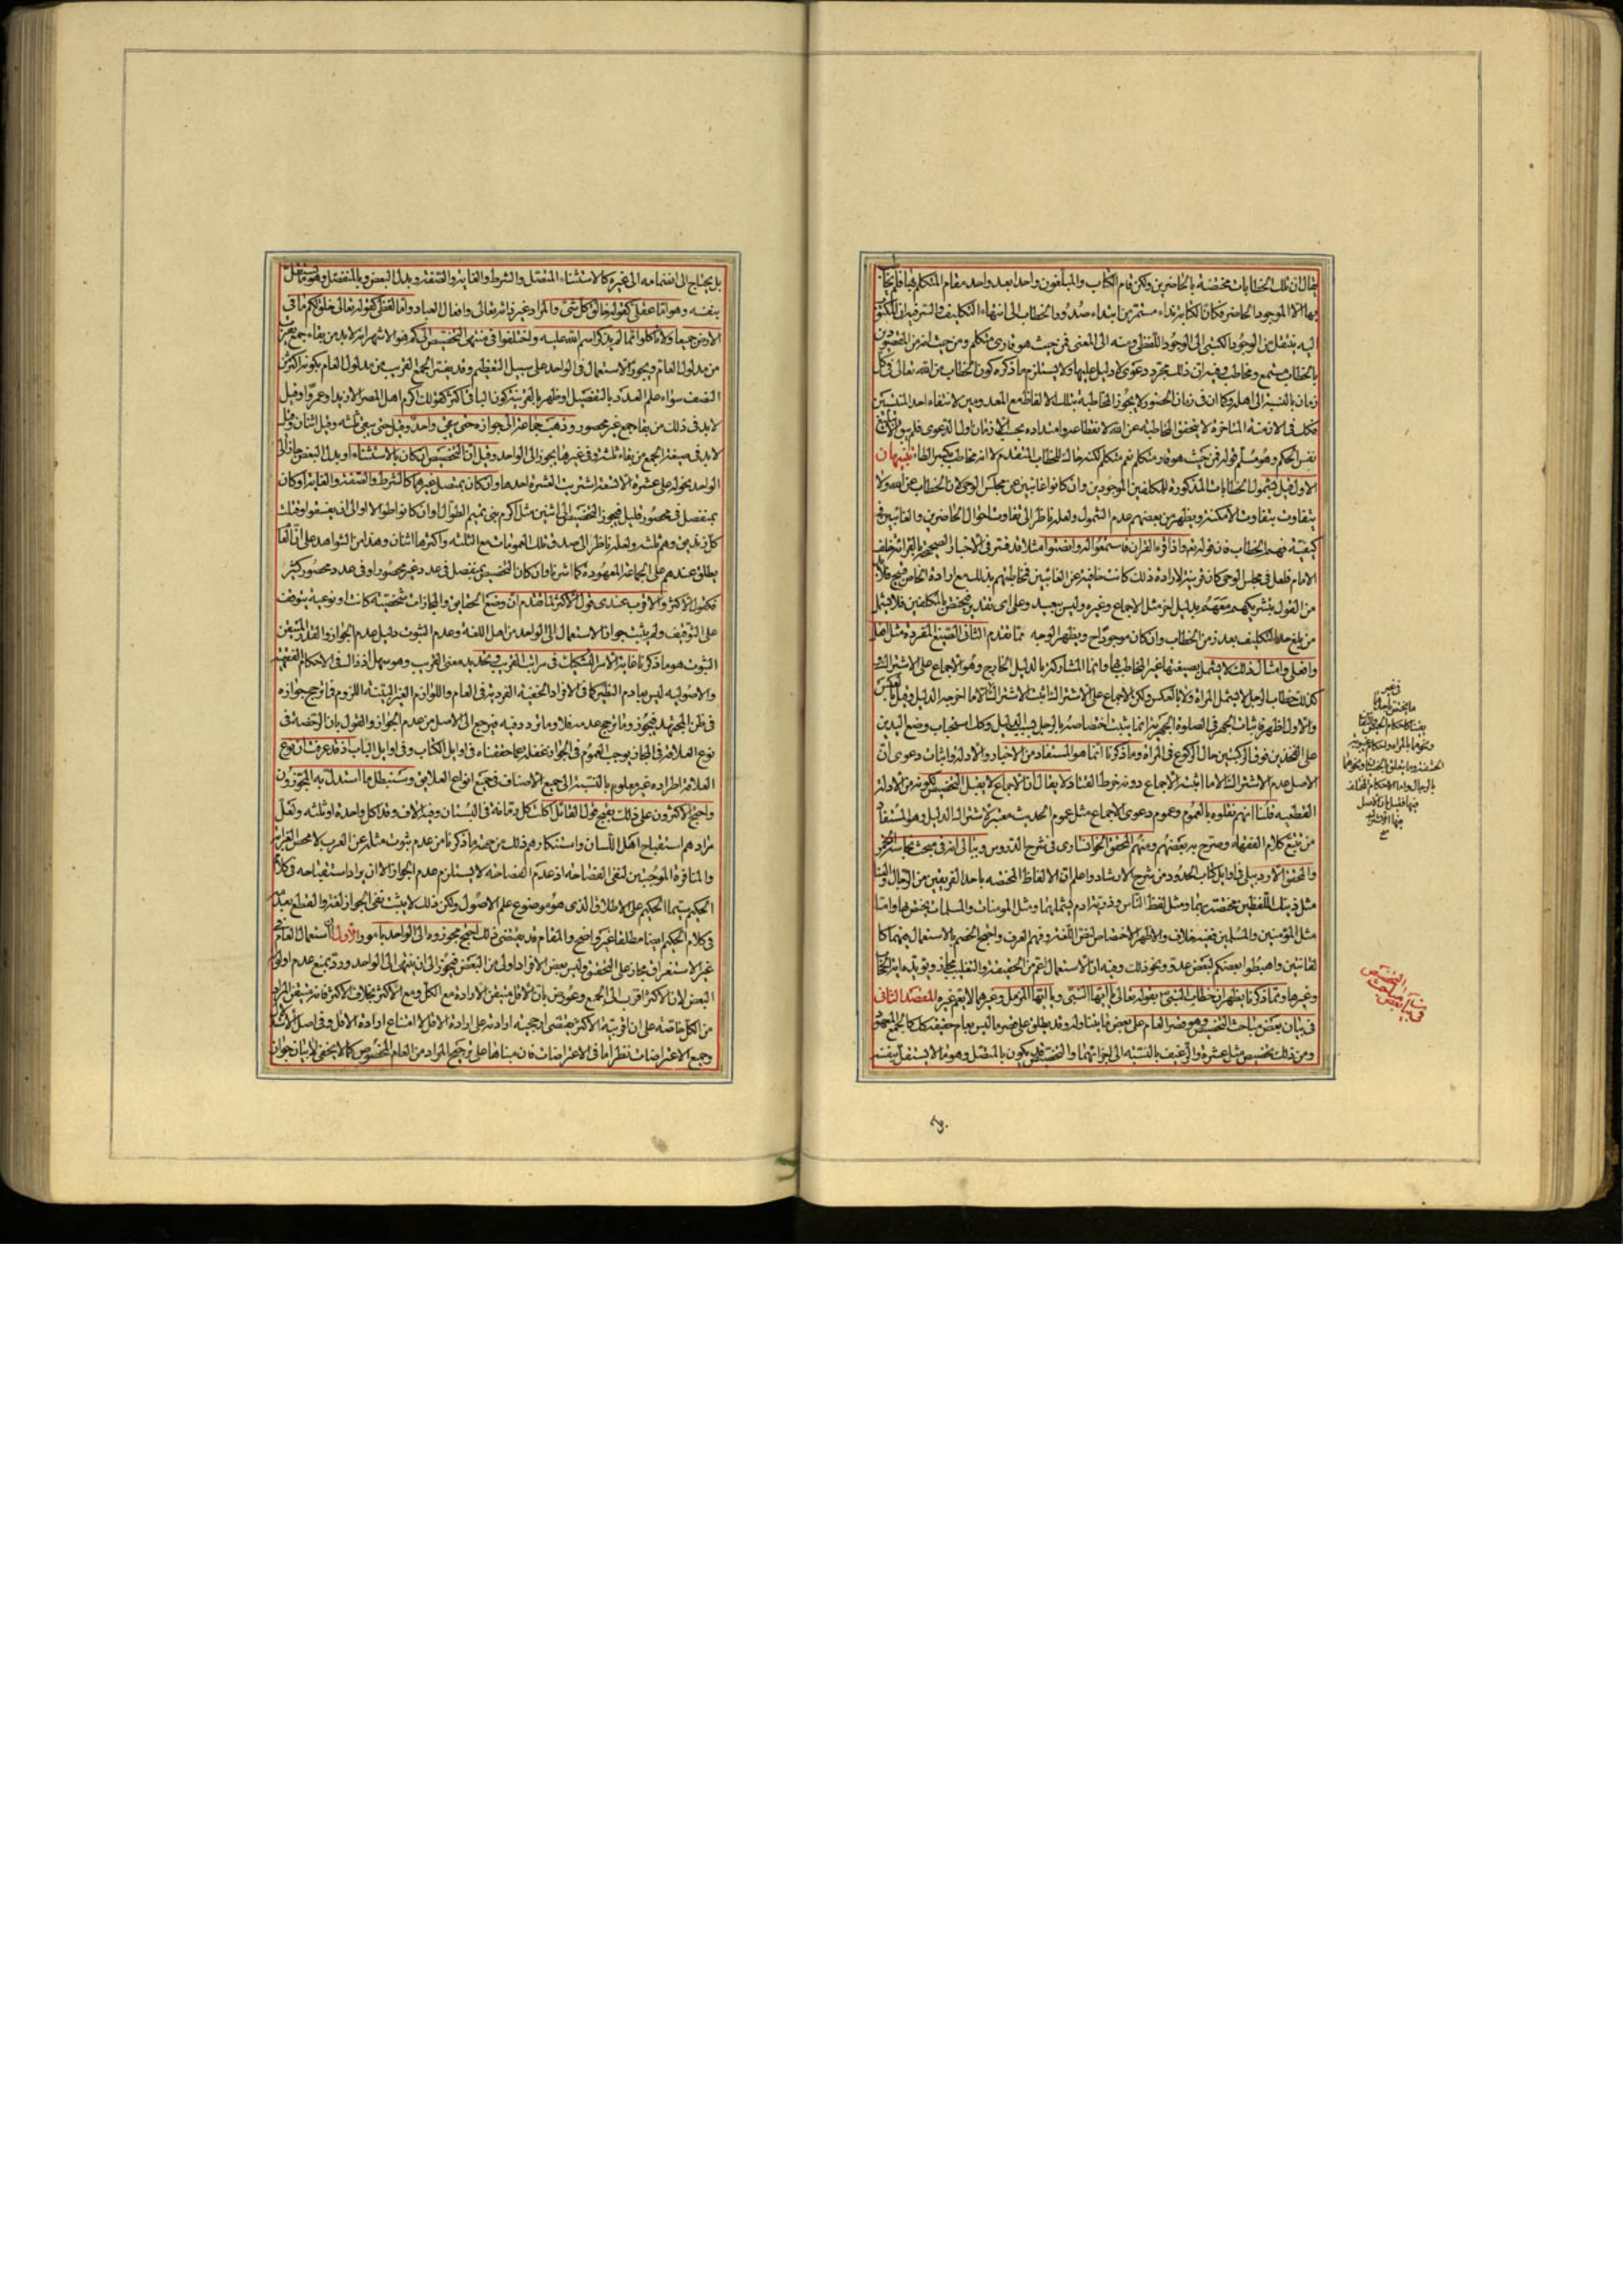 يقال ان تلك الخطابات مختصة بالحاضرين ولكن قام الكتاب والمبلغون واحدا بعد واحد مقام المتكلم بها فلم يخاطب
بها الا الموجود الحاضر فكان الكتابة نداء مستمر من ابتداء صدور الخطاب الى انتهاء التكليف والسر فيه ان المكتوب
اليه ينتقل من الوجود الكتبى الى الوجود اللفظى ومنه الى المعنى فمن حيث هو قارى متكلم ومن حيث انه من المقصودين
بالخطاب مستمع ومخاطب وفيه ان ذلك مجرد دعوى لا دليل عليها ولا يستلزم ما ذكره كون الخطاب من الله تعالى فى كل
زمان بالنسبة الى اهله وكما ان فى زمان الحضور لا يجوز المخاطبة بتلك الالفاظ مع المعدومين لانتفاء احد المنتسبين
فكك فى الازمنة المتاخرة لا يتحقق المخاطبة عن الله لانقطاعه وامتداده بحسب الازمان اول الدعوى فلم يبق الا
نفس الحكم وهو مسلم قوله فمن حيث هو قار متكلم نعم متكلم لكنه حاك للخطاب المتقدم لا انه مخاطب بكسر الطاء تنبيهان
الاول قيل بشمول الخطابات المذكورة للمكلفين الموجودين وان كانوا غائبين عن مجلس الوحى لان الخطاب عن الله ولا
يتفاوت بتفاوت الامكنة ويظهر من بعضهم عدم الشمول ولعله ناظر الى تفاوت احوال الحاضرين والغائبين فى
كيفية فهم الخطاب فان قوله تعم واذا قرء القران فاستمعوا له وانصتوا مثلا قد فسر فى الاخبار الصحيحة بالقرائة خلف
الامام فلعل فى مجلس الوحى كان قرينة لارادة ذلك كانت خافية عن الغائبين فخاطبهم بذلك مع ارادة الخاص قبيح فلا بد
من القول بتشريكهم معهم بدليل اخر مثل الاجماع وغيره وليس ببعيد وعلى اى تقدير فيختص بالمكلفين فلا يشمل
من بلغ حد التكليف بعد زمن الخطاب وان كان موجودا ح ويظهر الوجه مما تقدم الثانى الصيغ المفردة مثل افعل
وافعلى وامثال ذلك لا يشمل بصيغتها غير المخاطب بها وانما المشاركة بالدليل الخارج وهو الاجماع على الاشتراك
كذلك خطاب الرجل لا يشمل المراة ولا بالعكس ولكن الاجماع على الاشتراك ثابت الا ما اخرجه الدليل وقيل بالعكس
والاول اظهر فاثبات الجهر فى الصلوة الجهرية انما يثبت اختصاصه بالرجل بالدليل وكك استحباب وضع اليدين
على الفخذين فوق الركبتين حال الركوع فى المراة وما ذكرنا انما هو المستفاد من الاخبار والادلة واثبات دعوى ان
الاصل عدم الاشتراك الا ما اثبته الاجماع دونه خرط القتاد لا يقال ان الاجماع لا يقبل التخصيص لكونه من الادلة
القطعيه قلنا انهم نقلوه بالعموم وعموم دعوى الاجماع مثل عموم الحديث معتبر لاشتراك الدليل وهو المستفاد
من تتبع كلام الفقهاء وصرح به بعضهم ومنهم المحقق الخوانسارى فى شرح الدروس
والمحقق الاردبيلى فى اوايل كتاب الحدود من شرح الارشاد واعلم ان الالفاظ المختصه باحد الفريقين من الرجال والنساء
مثل ذينك اللفظين مختصة بهما ومثل لفظ الناس وذرية ادم يشملهما ومثل المومنات والمسلمات يختص بها واما
مثل المؤمنين والمسلمين ففيه خلاف والاظهر الاختصاص لنص اللغة وفهم العرف واحتج الخصم بالاستعمال فيهما كا
لقانتين واهبطوا بعضكم لبعض عدو ونحو ذلك وفيه ان الاستعمال اعم من الحقيقة والتغليب مجاز ويؤيده
وغيرها ومما ذكرنا يظهر ان خطاب النبى ص بقوله تعالى يا ايها النبى ويا ايها المزمل وغيرهما لا يعم غيره المقصد الثانى
فى بيان بعض مباحث التخصيص وهو قصر العام على بعض ما يتناوله وقد يطلق على قصر ما ليس بعام حقيقة كك كالجمع المعهود
ومن ذلك تخصيص مثل عشرة والرغيف بالنسبة الى اجزائهما والتخصيص قد يكون بالمتصل وهو ما لا يستقل بنفسه
فى غير
ما يختص باحدهما
يقينا كاحكام الحيض والنفاس
ونحوهما بالمراة واحكام غيبوبة
الحشفة وما يتعلق بالخصى ونحوهما
بالرجال واما الاحكام المختلف
فيها فقيل ان الاصل
فيها الاشتراك
منه
فى بيان بعض
مباحث
التخصيص
بل يحتاج الى انضمامه الى غيره كالاستثناء المتصل والشرط والغاية والصفة وبدل البعض وبالمنفصل وهو ما يستقل
بنفسه وهو اما عقلى كقوله خالق كل شئ والمراد غير ذاته تعالى وافعال العباد واما لفظى كقوله تعالى خلق لكم ما فى
الارض جميعا ولا تاكلوا مما لم يذكر اسم الله عليه واختلفوا فى منتهى التخصيص الى كم هو الاشهر انه لا بد من بقاء جمع يقرب
من مدلول العام ويجوز الاستعمال فى الواحد على سبيل التعظيم وقد يفسر الجمع القريب من مدلول العام بكونه اكثر من
النصف سواء علم العدد بالتفصيل او ظهر بالقرينة كون الباقى اكثر كقولك اكرم اهل المصر الا زيدا وعمروا وقيل
لا بد فى ذلك من بقاء جمع غير محصور وذهب جماعة الى جوازه حتى يبقى واحد وقيل حتى يبقى ثلثه وقيل اثنان وقيل
لا بد فى صيغة الجمع من بقاء ثلثه وفى غيرها يجوز الى الواحد وقيل ان التخصيص ان كان بالاستثناء او بدل البعض جاز الى
الواحد نحو له على عشرة الا تسعة واشتريت العشرة احدها وان كان بمتصل غيرهما كالشرط والصفة والغاية او كان
بمنفصل فى محصور قليل فيجوز التخصيص الى اثنين مثل اكرم بنى تميم الطوال وان كانوا طوالا او الى ان يفسقوا وقتلت
كل زنديق وهم ثلثه ولعله ناظر الى صدق تلك العمومات مع الثلثه واكثرها اثنان وهذا من الشواهد على ان العام
يطلق عندهم على الجماعة المعهودة كما اشرنا وان كان التخصيص بمنفصل فى عدد غير محصور او فى عدد محصور كثير
فكقول الاكثر والاقرب عندى قول الاكثر لما تقدم ان وضع الحقايق والمجازات شخصية كانت او نوعية يتوقف
على التوقيف ولم يثبت جواز الاستعمال الى الواحد من اهل اللغة وعدم الثبوت دليل عدم الجواز والقدر المتيقن
الثبوت هو ما ذكرنا غاية الامر التشكيك فى مراتب القرب فى تحديد معنى القريب وهو سهل اذ ذلك فى الاحكام الفقهية
والاصوليه ليس بعادم النظير كما فى الافراد الخفية الفردية فى العام واللوازم الغير البينة اللزوم فما ترجح جوازه
فى ظن المجتهد فيجوز وما ترجح عدمه فلا وما تردد فيه فيرجع الى الاصل من عدم الجواز والقول بان الرخصة فى
نوع العلاقة فى المجاز يوجب العموم فى الجواز غفلة عما حققناه فى اوايل الكتاب وفى اوايل الباب اذ قد عرفت ان نوع
العلاقة اطراده غير معلوم بالنسبة الى جميع الاصناف فى جميع انواع العلايق وسنبطل ما استدل به المجوزون
واحتج الاكثرون على ذلك بقبح قول القائل اكلت كل رمانة فى البستان وفيه الاف وقد اكل واحدة او ثلثه ولعل
مرادهم استقباح اهل اللسان واستنكارهم ذلك من جهة ما ذكرنا من عدم ثبوت مثله عن العرب لا محض الغرابة
والمنافرة الموجبتين لنفى الفصاحة اذ عدم الفصاحة لا يستلزم عدم الجواز الا ان يراد استقباحه فى كلام
الحكيم سيما الحكيم على الاطلاق الذى هو موضوع علم الاصول ولكن ذلك لا يثبت نفى الجواز لغة والقطع بعدمه
فى كلام الحكيم ايضا مطلقا غير واضح والمقام قد يقتضى ذلك احتج مجوزوه الى الواحد بامور الاول ان استعمال العام فى
غير الاستغراق مجاز على التحقيق وليس بعض الافراد اولى من البعض فيجوز الى ان ينتهى الى الواحد ورد بمنع عدم اولوية
البعض لان الاكثر اقرب الى الجمع وعورض بان الاقل متيقن الارادة مع الكل ومع الاكثر بخلاف الاكثر فانه متيقن المراد
من الكل خاصة على ان اقربية الاكثر يقتضى ارجحية ارادته على ارادة الاقل لا امتناع ارادة الاقل وفى اصل
وجميع الاعتراضات نظر اما فى الاعتراضات فان مبناها على ترجيح المراد من العام المخصوص كما لا يخفى لا بيان جواز